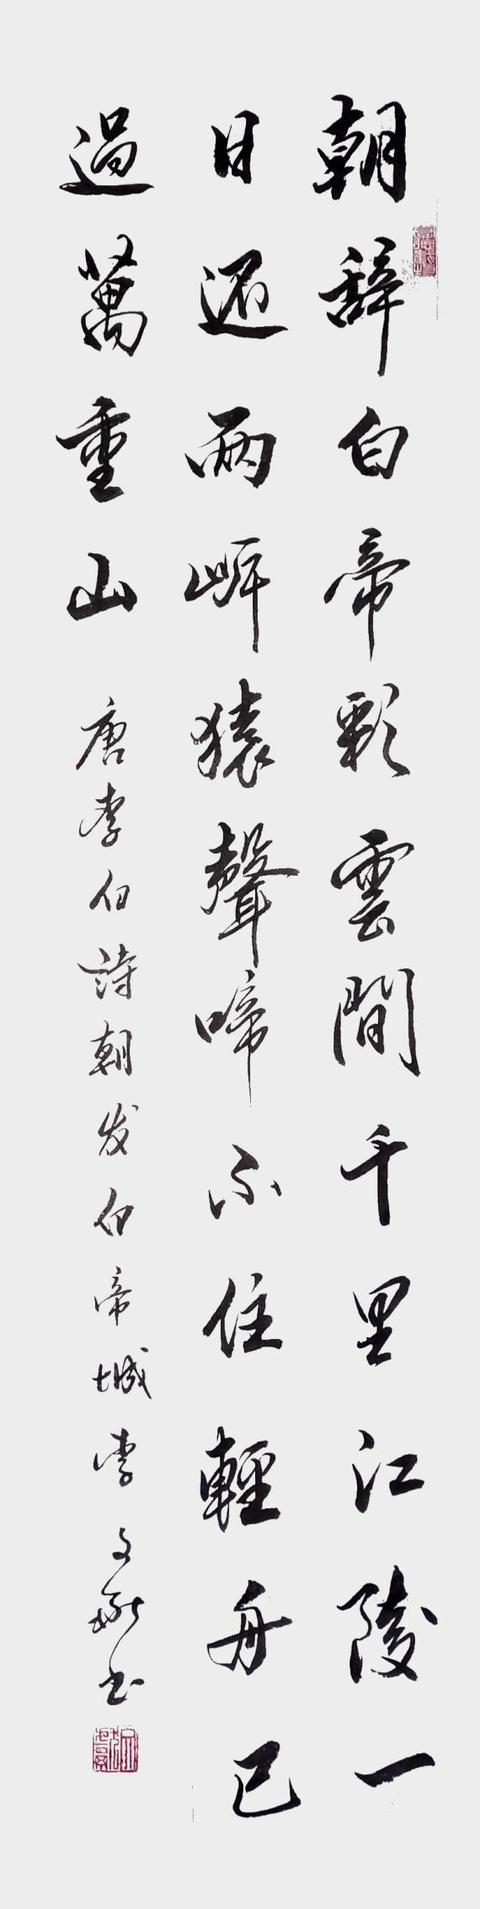 朝辞白帝彩雲間千里江陵一
日還兩岍猿聲啼不住輕舟已
過萬重山 唐李白詩朝发白帝城李文 书